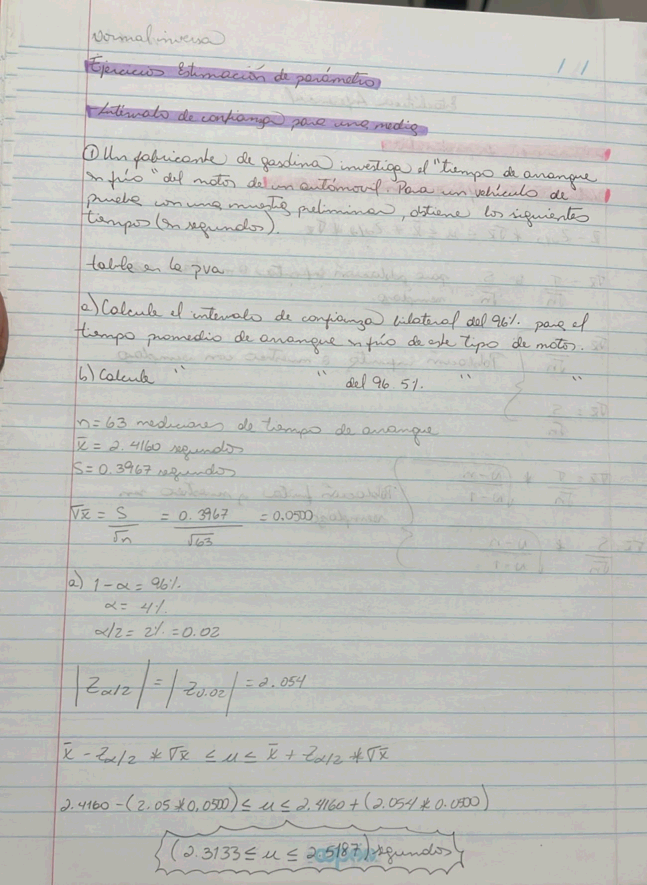 normal inversa
Ejercicios Estimación de parámetro
Intervalo de confianza para una media
① Un fabricante de gasolina investiga el "tiempo de arranque
en frío" del motor de un automóvil. Para un vehículo de
prueba con una muestra preliminar, obtiene los siguientes
tiempos (en segundos).
tabla en la pva
a) Calcule el intervalo de confianza bilateral del 96% para el
tiempo promedio de arranque en frío de este tipo de motor.
b) Calcule " " del 96.5% " "
n = 63 mediciones de tiempo de arranque
x̄ = 2.4160 segundos
S = 0.3967 segundos
σx̄ = S/√n = 0.3967/√63 = 0.0500
a) 1 - α = 96%
α = 4%
α/2 = 2% = 0.02
|Zα/2| = |Z0.02| = 2.054
x̄ - Zα/2 * σx̄ ≤ μ ≤ x̄ + Zα/2 * σx̄
2.4160 - (2.05 * 0.0500) ≤ μ ≤ 2.4160 + (2.054 * 0.0500)
(2.3133 ≤ μ ≤ 2.5187) segundos